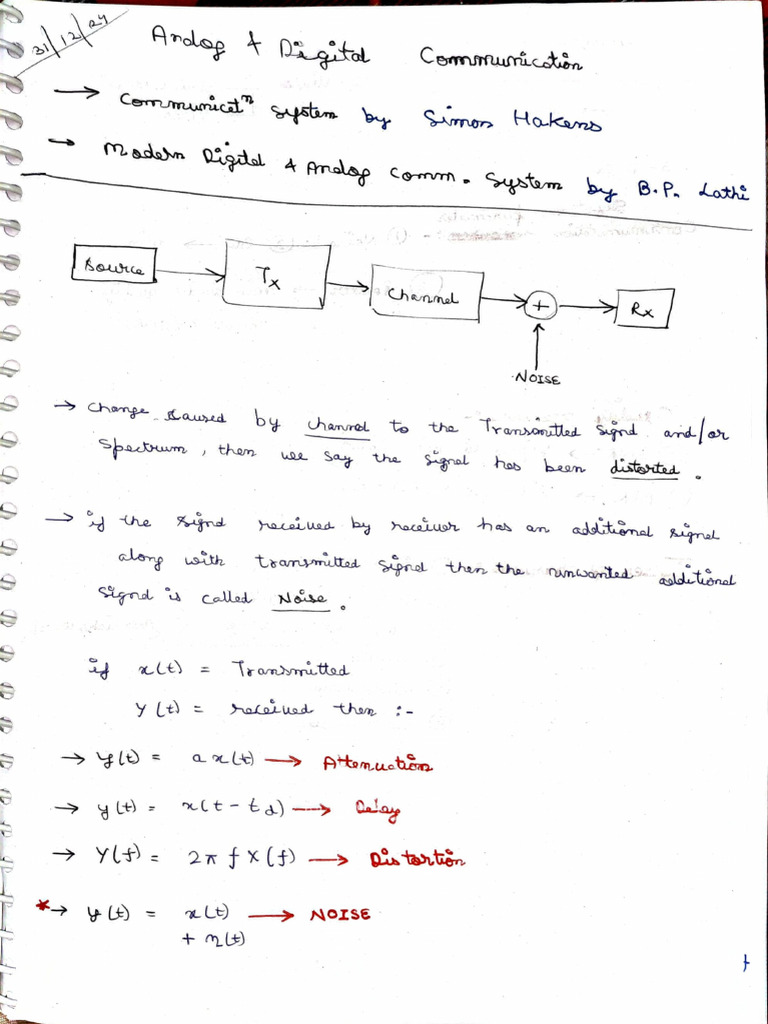 31/12/24
Analog & Digital Communication
→ Communicatⁿ System by Simon Hakens
→ Modern Digital & Analog Comm. System by B.P. Lathi
Source
Tx
Channel
+
Rx
NOISE
→ Change caused by channel to the Transmitted signal and/or
Spectrum, then we say the signal has been distorted.
→ if the signal received by receiver has an additional signal
along with transmitted signal then the unwanted additional
signal is called Noise.
if x(t) = Transmitted
y(t) = received then :-
→ y(t) = a x(t) → Attenuction
→ y(t) = x(t - td) → Delay
→ Y(f) = 2π f X(f) → Distortion
*→ y(t) = x(t) → NOISE
+ n(t)